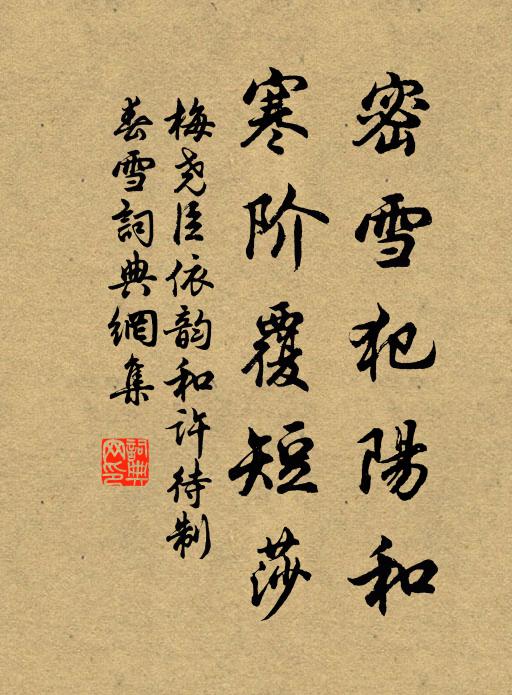 密雪犯陽和
寒阶覆短莎
梅尧臣依韵和许待制
春雪詞典網集
詞典
网印